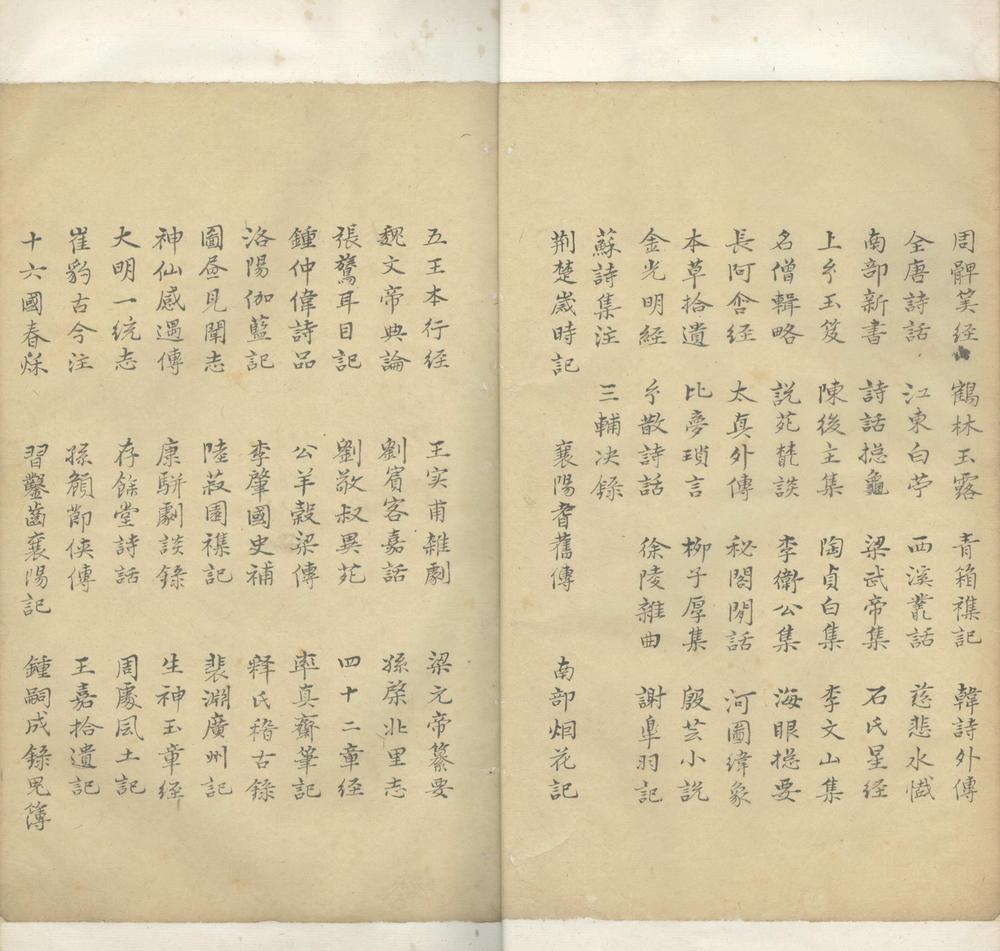 周髀筭経 鶴林玉露 青箱襍記 韓詩外傳
全唐詩話 江東白苧 西溪叢話 慈悲水懺
南部新書 詩話揔龜 梁武帝集 石氏星経
上乡玉笈 陳後主集 陶貞白集 李文山集
名僧輯略 說苑䕺談 李衛公集 海眼揔要
長阿含経 太真外傳 秘閣閒話 河圖緯象
本草拾遺 比夢瑣言 栁子厚集 殷芸小說
金光明経 乡散詩話 徐陵雜曲 謝皐羽記
蘇詩集注 三輔决錄
荆楚嵗時記 襄陽耆舊傳 南部烟花記
五王本行経 王实甫雜劇 梁元帝纂要
魏文帝典論 劉賓客嘉話 孫棨北里志
張鷟耳目記 劉敬叔異苑 四十二章経
鍾仲偉詩品 公羊糓梁傳 率真齋筆記
洛陽伽藍記 李肇國史補 释氏稽古錄
圖𦘕見聞志 陸菽園襍記 裴淵廣州記
神仙感遇傳 康駢劇談錄 生神玉章経
大明一統志 存餘堂詩話 周處風土記
崔豹古今注 孫頠節侠傳 王嘉拾遺記
十六國春秌 習鑿齒襄陽記 鍾嗣成錄鬼簿